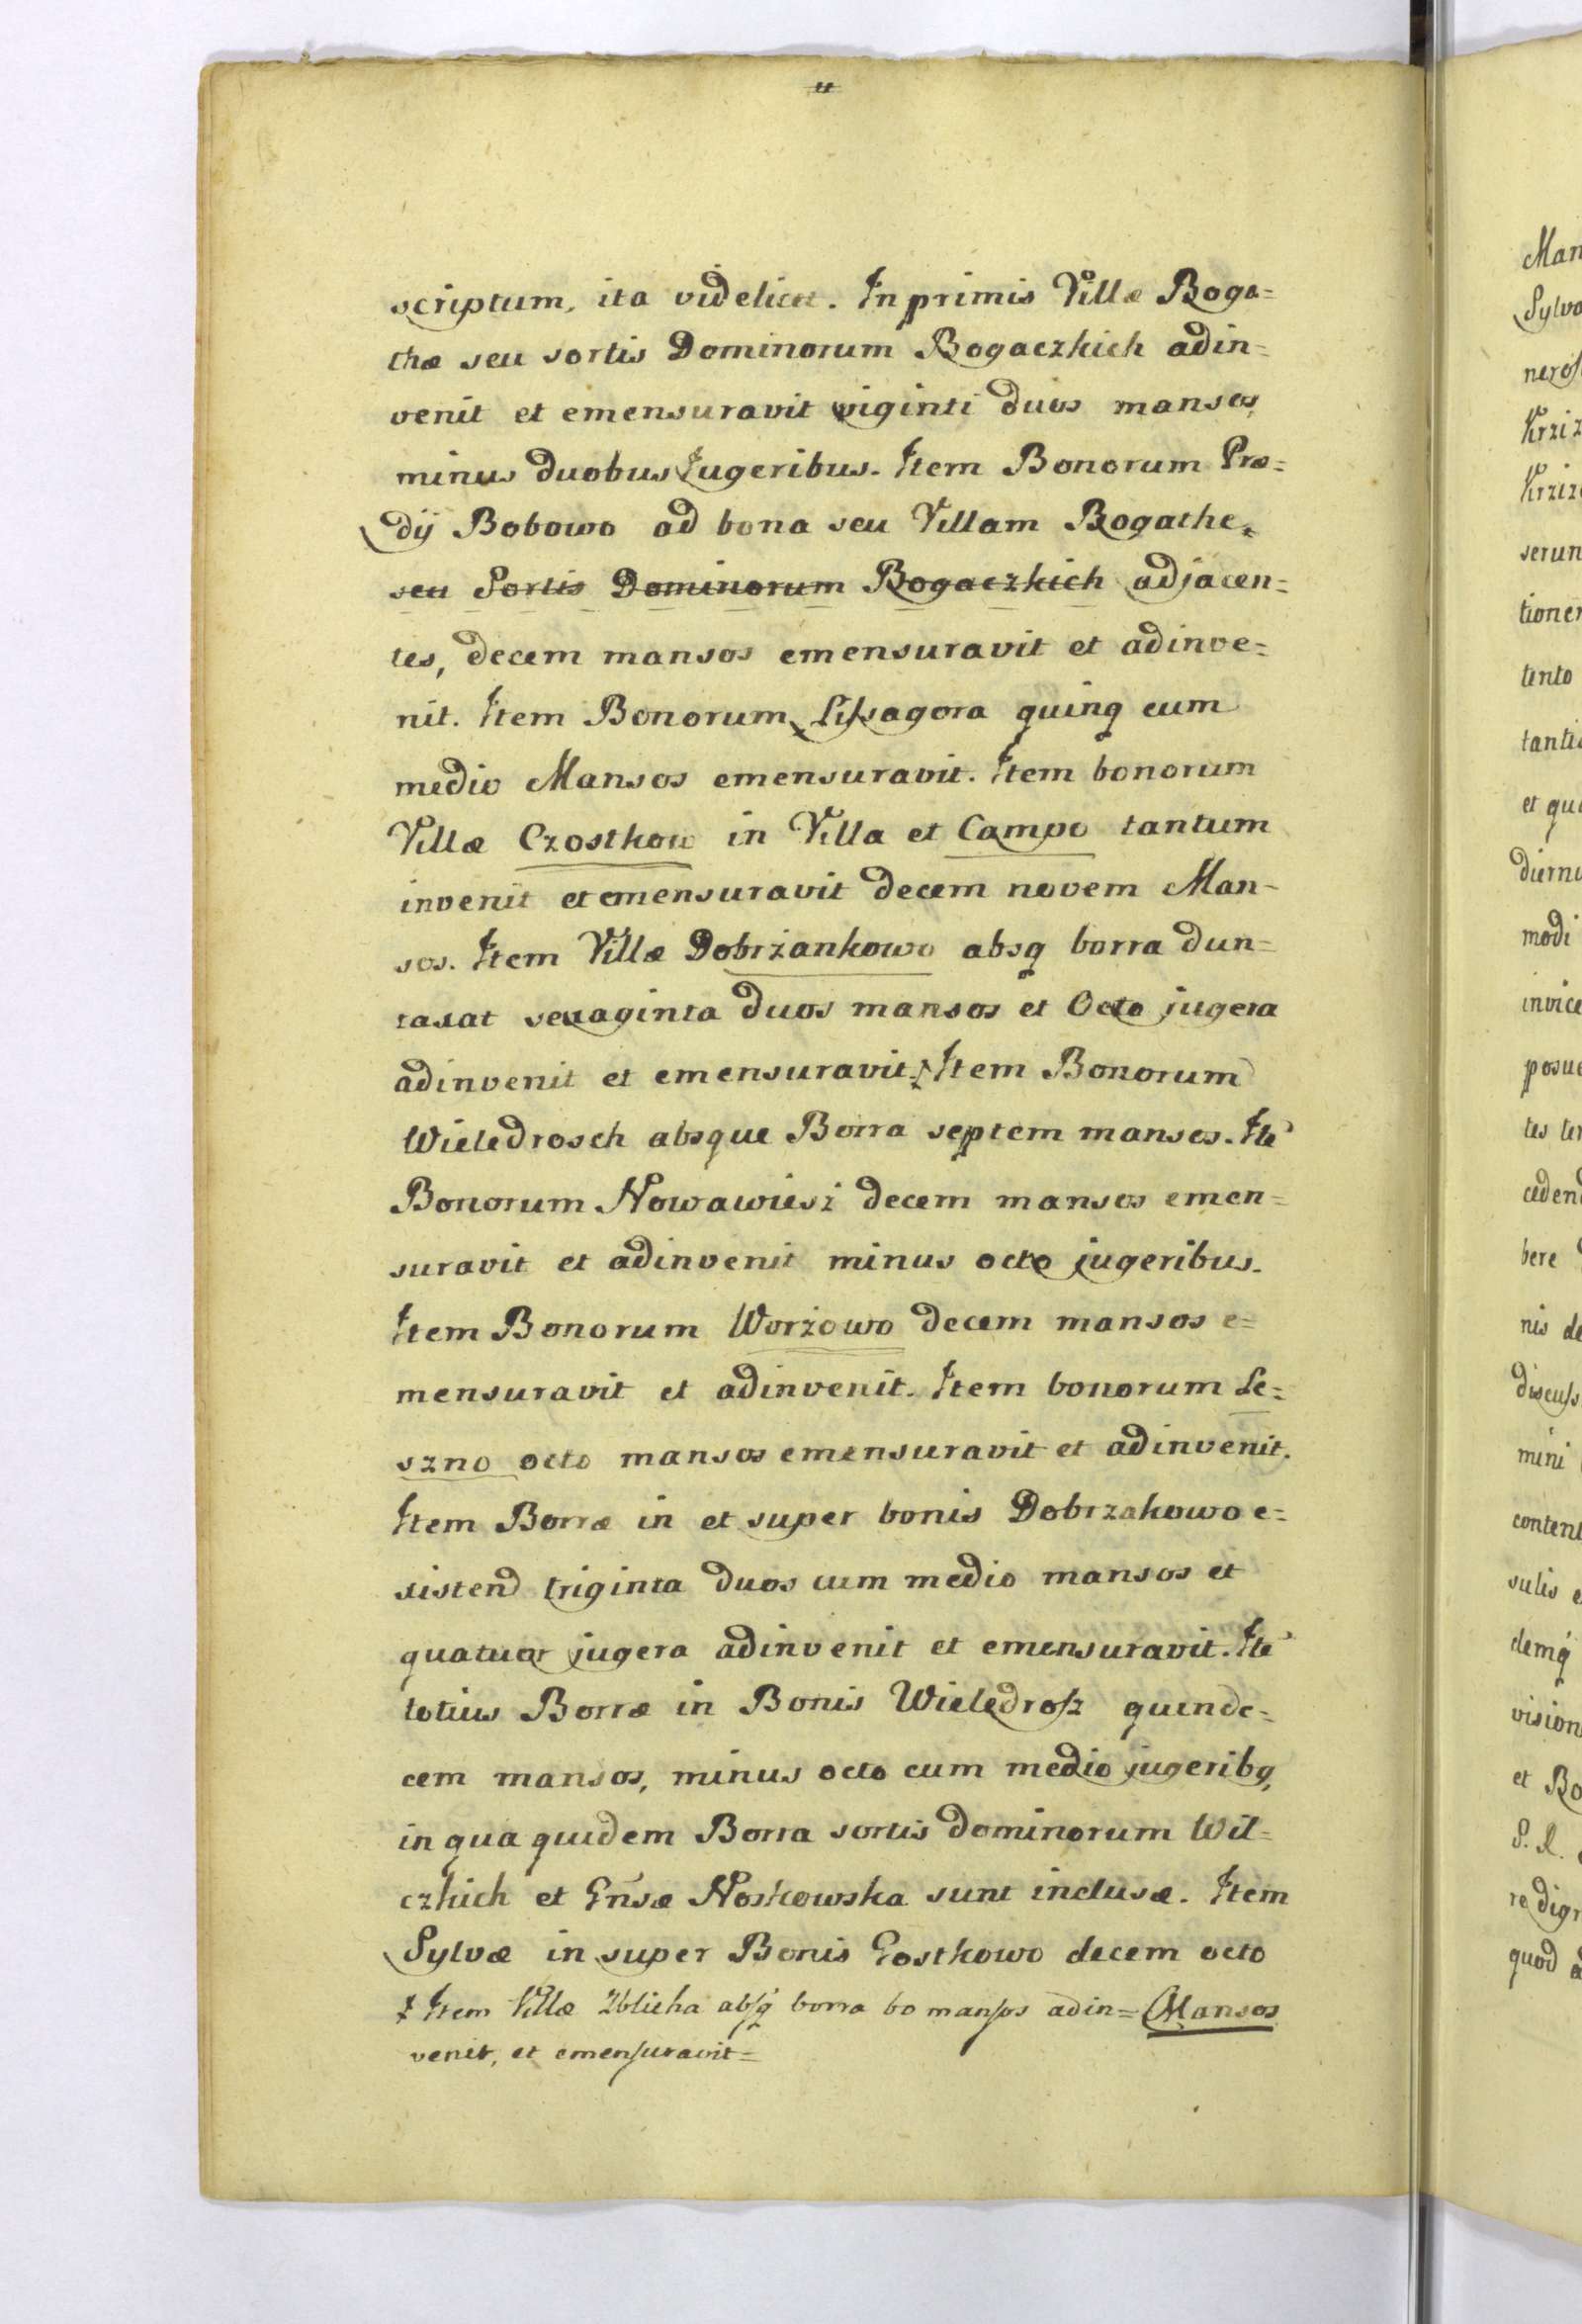 scriptum, ita videlicet. In primis Villæ Boga=
thæ seu sortis Dominorum Bogaczkich adin=
venit et emensuravit viginti duos mansos
minus duobus Jugeribus. Item Bonorum Præ=
dÿ Bobowo ad bona seu Villam Bogathe
seu Sortis Dominorum Bogaczkich adjacen=
tes, decem mansos emensuravit et adinve=
nit. Item Bonorum Lissagora quinq cum
medio Mansos emensuravit. Item bonorum
Villæ Czostkow in Villa et Campo tantum
invenit et emensuravit decem novem Man-
sos. Item Villæ Dobrżankowo absq borra dun=
taxat sexaginta duos mansos et Octo jugera
adinvenit et emensuravit. ‡ Item Bonorum
Wieledrosch absque Borra septem mansos. Ite
Bonorum Nowawiesż decem mansos emen=
suravit et adinvenit minus octo jugeribus.
Item Bonorum Worżowo decem mansos e=
mensuravit et adinvenit. Item bonorum Le=
szno octo mansos emensuravit et adinvenit.
Item Borræ in et super bonis Dobrzakowo e=
xistend triginta duos cum medio mansos et
quatuor jugera adinvenit et emensuravit. Ite
totius Borræ in Bonis Wieledrosz quinde=
cem mansos, minus octo cum medio jugeribq,
in qua quidem Borra sortis dominorum Wil=
czkich et Gñsæ Noskowska sunt inclusæ. Item
Sylvæ in super Bonis Gostkowo decem octo
‡ Item Villæ Zblicha absq borra bo mansos adin= Mansos
venit, et emensuravit=
Man
Sylvo
neros
Krziz
Krziz
serun
tioner
tento
tantis
et qu
diurnu
modi
invice
posue
tes ter
cedend
bere
nis de
discuss
mini
content
sulis e
demq
vision
et Bo
S. R.
re dign
quod a